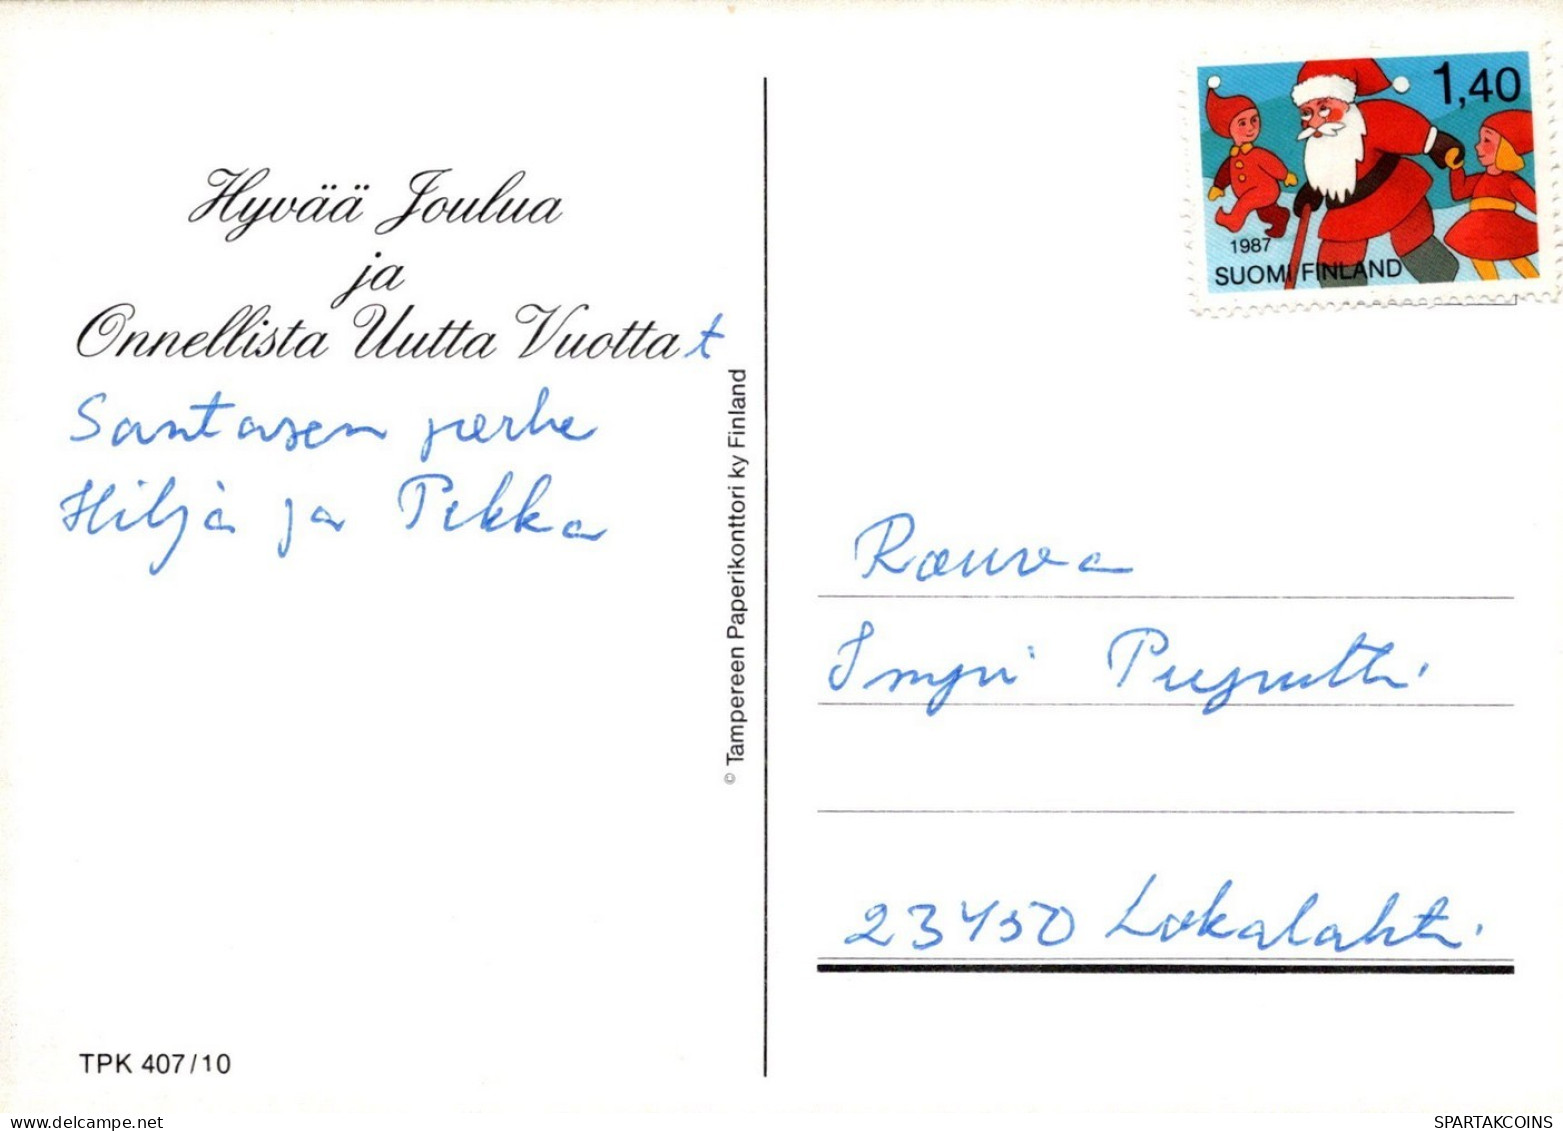 Hyvää Joulua
ja
Onnellista Uutta Vuotta t
Santasen perhe
Hilja ja Pekka
TPK 407/10
© Tampereen Paperikonttori ky Finland
1,40
1987
SUOMI FINLAND
Rouva
Impi
23450 Lokalahti
SPARTAKCOINS